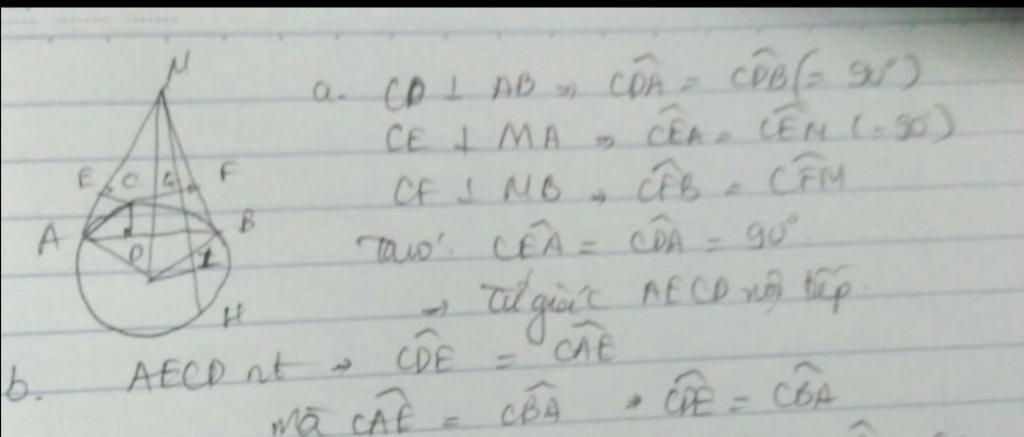 M
a. CD ⊥ AB ⇒ \widehat{CDA} = \widehat{CDB} (= 90°)
CE ⊥ MA ⇒ \widehat{CEA} = \widehat{CEM} (= 90°)
CF ⊥ MB → \widehat{CFB} = \widehat{CFM}
E C G F
A B
D I
H
Ta có: \widehat{CEA} = \widehat{CDA} = 90°
→ Tứ giác AECD nội tiếp
b. AECD nt → \widehat{CDE} = \widehat{CAE}
mà \widehat{CAE} = \widehat{CBA} → \widehat{CDE} = \widehat{CBA}